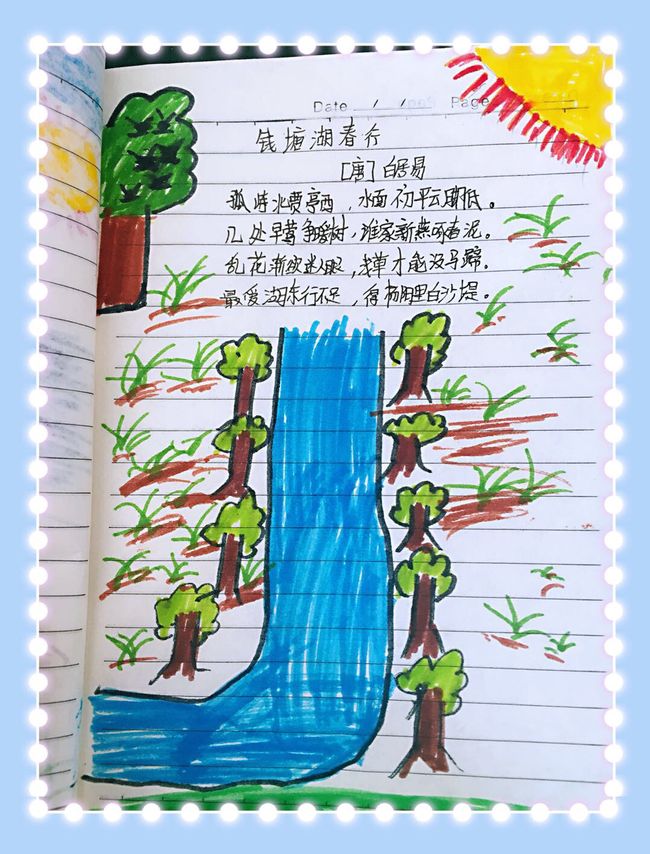 Date / / Page
钱塘湖春行
[唐]白居易
孤山寺北贾亭西，水面初平云脚低。
几处早莺争暖树，谁家新燕啄春泥。
乱花渐欲迷人眼，浅草才能没马蹄。
最爱湖东行不足，绿杨阴里白沙堤。